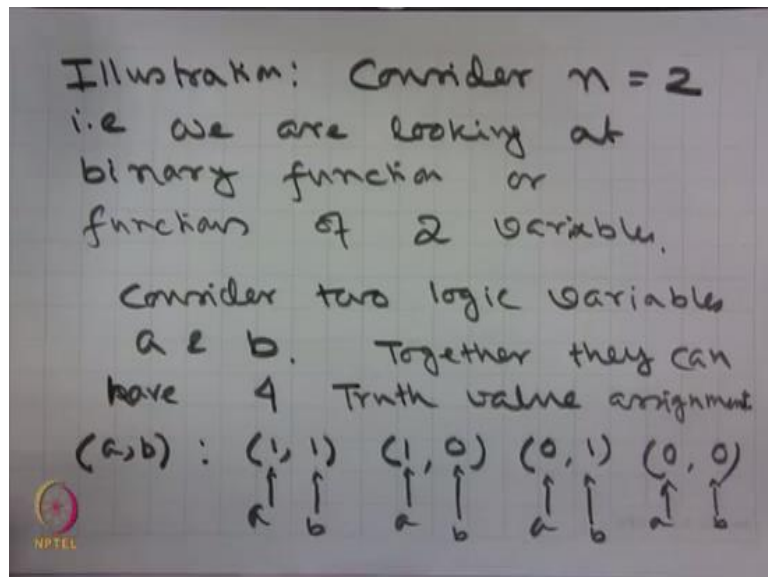 Illustration: Consider n = 2
i.e we are looking at
binary function or
functions of 2 variables.
Consider two logic variables
a & b. Together they can
have 4 Truth value assignment
(a,b) : (1, 1) (1, 0) (0, 1) (0, 0)
a b a b a b a b
NPTEL